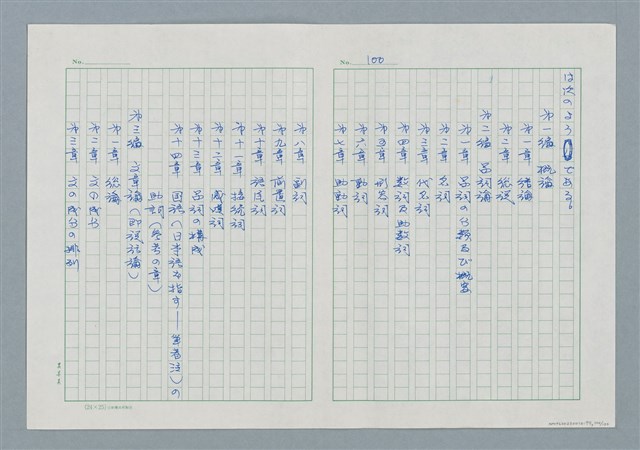 No. 100
は次のようである。
第一編 概論
第一章 緒論
第二章 総説
第二編 品詞論
第一章 品詞の分類及び概念
第二章 名詞
第三章 代名詞
第四章 数詞及助数詞
第五章 形容詞
第六章 動詞
第七章 助動詞
No.
第八章 副詞
第九章 前置詞
第十章 後置詞
第十一章 接続詞
第十二章 感嘆詞
第十三章 品詞の構成
第十四章 国語(日本語を指す——筆者注)の
助詞(参考の章)
第三編 文章論(即説話論)
第一章 総論
第二章 文の成分
第三章 文の成分の排列
(20×20)